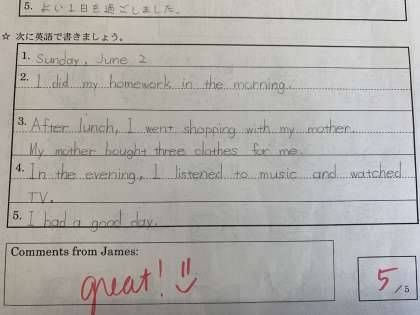 5. よい1日を過ごしました。
☆ 次に英語で書きましょう。
1. Sunday, June 2
2. I did my homework in the morning.
3. After lunch, I went shopping with my mother.
My mother bought three clothes for me.
4. In the evening, I listened to music and watched
TV.
5. I had a good day.
Comments from James:
great!
5 /5